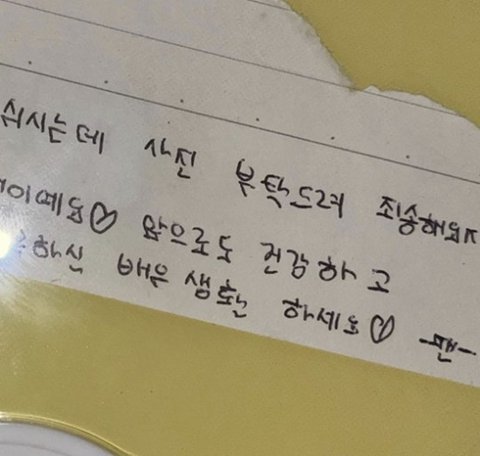 쉬시는데 사진 부탁드려 죄송해요
이에요♡ 앞으로도 건강하고
하신 배우 생활 하세요♡ -팬-